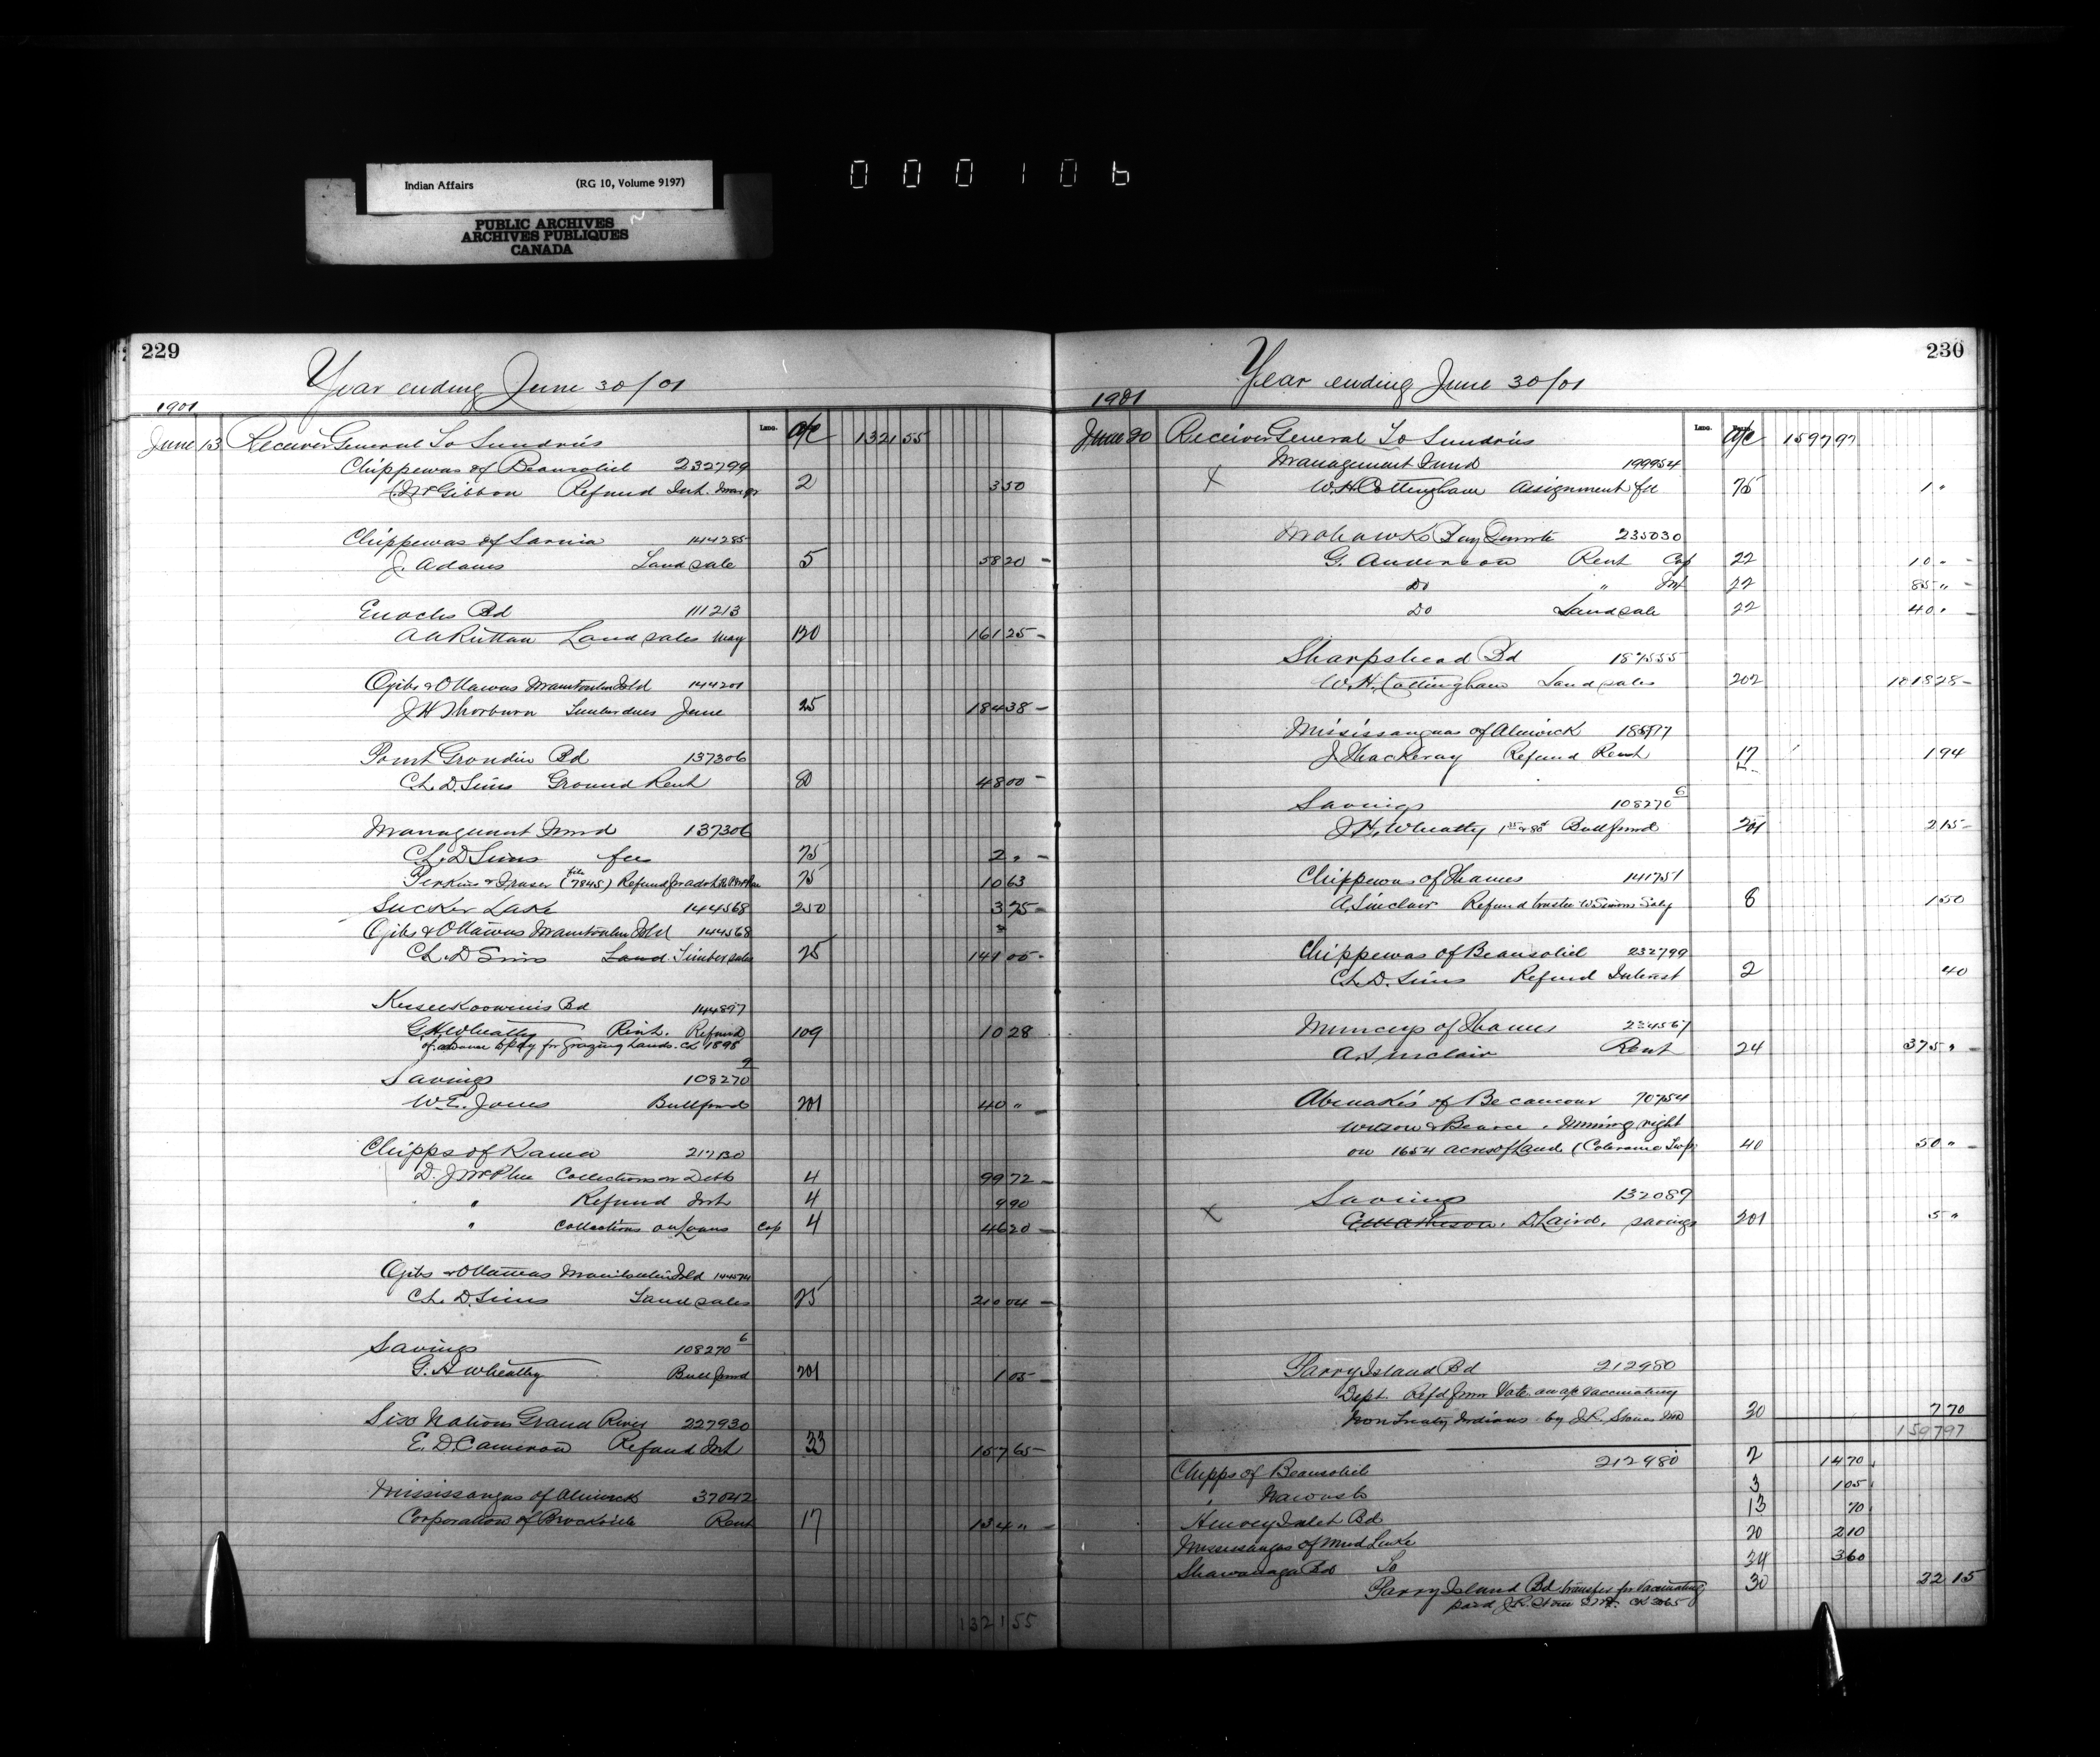 Indian Affairs (RG 10, Volume 9197)
PUBLIC ARCHIVES
ARCHIVES PUBLIQUES
CANADA
000106
229
Year ending June 30/01
1901
Folio. a/c
June 13 Receiver General To Sundries 1321 55
Chippewas of Beausoliel 232799
McGibbon Refund Int. 2 3 50
Chippewas of Sarnia 144285
J. Adams Land sale 5 58 20 -
Enochs Bd 111213
A A Ruttan Land sales May 120 161 25 -
Ojibs & Ottawas Manitoulin Isld 144201
J H Thorburn Timber dues June 25 184 38 -
Point Grondin Bd 137306
Ch. D. Sims Ground Rent 80 48 00 -
Management Fund 137306
Ch. D Sims fee 75 2 " -
Perkins & Fraser (file 7845) Refund for advt 75 10 63
Sucker Lake 144568 250 3 75 -
Ojibs & Ottawas Manitoulin Isld 144568
Ch. D Sims Land Timber sales 25 141 05 -
Keeseekoowenins Bd 144897
G H Wheatley Rent. Refund 109 10 28
of advance to pay for Grazing Lands. Ck 1898
Savings 108270 2
W. E. Jones Bull fund 201 40 " -
Chipps of Rama 217130
D. J McPhee Collections on Debts 4 99 72 -
" " Refund Int 4 9 90
" Collections on Loans Cap 4 46 20 -
Ojibs & Ottawas Manitoulin Isld 144574
Ch. D. Sims Land sales 25 210 04 -
Savings 108270 6
G. H Wheatley Bull fund 201 1 05 -
Six Nations Grand River 227930
E. D. Cameron Refund Int 33 157 65 -
Mississaugas of Alnwick 37042
Corporation of Brockville Rent 17 134 " -
1321 55
230
Year ending June 30/01
1901
a/c
June 30 Receiver General To Sundries 1597 97
Management Fund 199954
x W. H Cottingham Assignment fee 75 1 "
Mohawks Bay Quinte 235030
G. Anderson Rent Cap 22 10 " -
Do " Int 22 85 " -
Do Land sale 22 40 " -
Sharpshead Bd 187555
W. H. Cottingham Land sales 202 1018 28 -
Mississaugas of Alnwick
J Thackeray Refund Rent 17 1 94
Savings 108270 6
J. H. Wheatley Bull fund 201 2 15 -
Chippewas of Thames 141751
A. Sinclair Refund trustee W Simons Saly 8 1 50
Chippewas of Beausoliel 232799
Ch. D. Sims Refund Interest 2 40
Munceys of Thames 234567
A. Sinclair Rent 24 375 " -
Abenakis of Becancour 70754
Wilson & Bearce . Mining right
on 1654 acres of Land (Coleraine Twp) 40 50 " -
Savings 132089
x D. Laird. savings 201 5 "
Parry Island Bd 212980
Dept Refd from Vote on a/c vaccinating
Non Treaty Indians by J. R. Stone MD 30 7 70
1597 97
Chipps of Beausoliel 212980 2 14 70
" Nawash 3 1 05
Henvey Inlet Bd 13 70
Mississaugas of Mud Lake 20 2 10
Shawanaga Bd To 34 3 60
Parry Island Bd transfer for Vaccinating 30 22 15
paid J. R. Stone Ck 3065